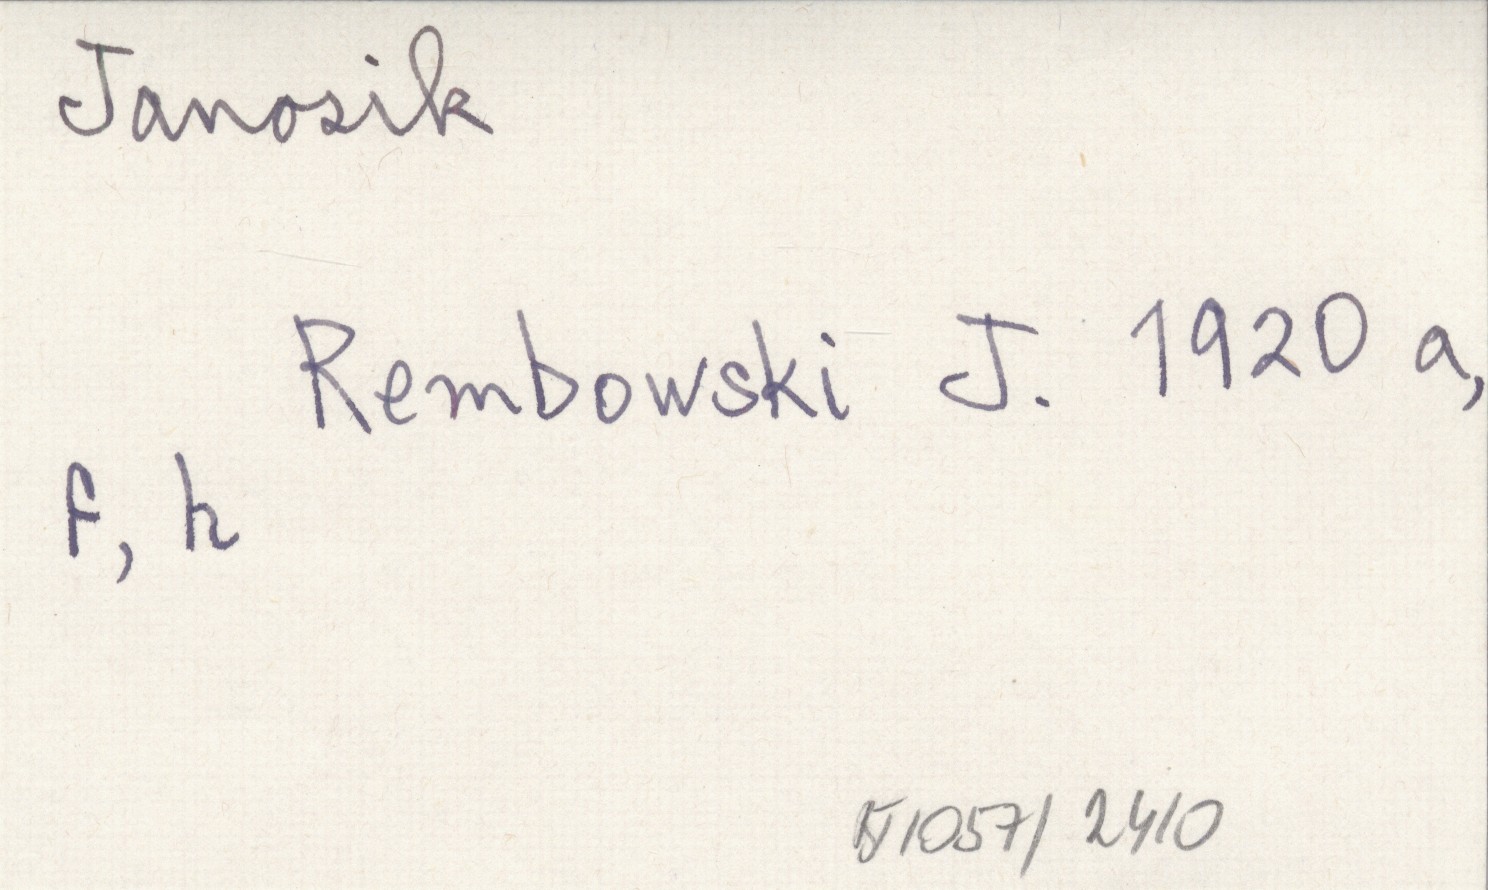 Janosik
Rembowski J. 1920 a,
f, h
1057/ 2410